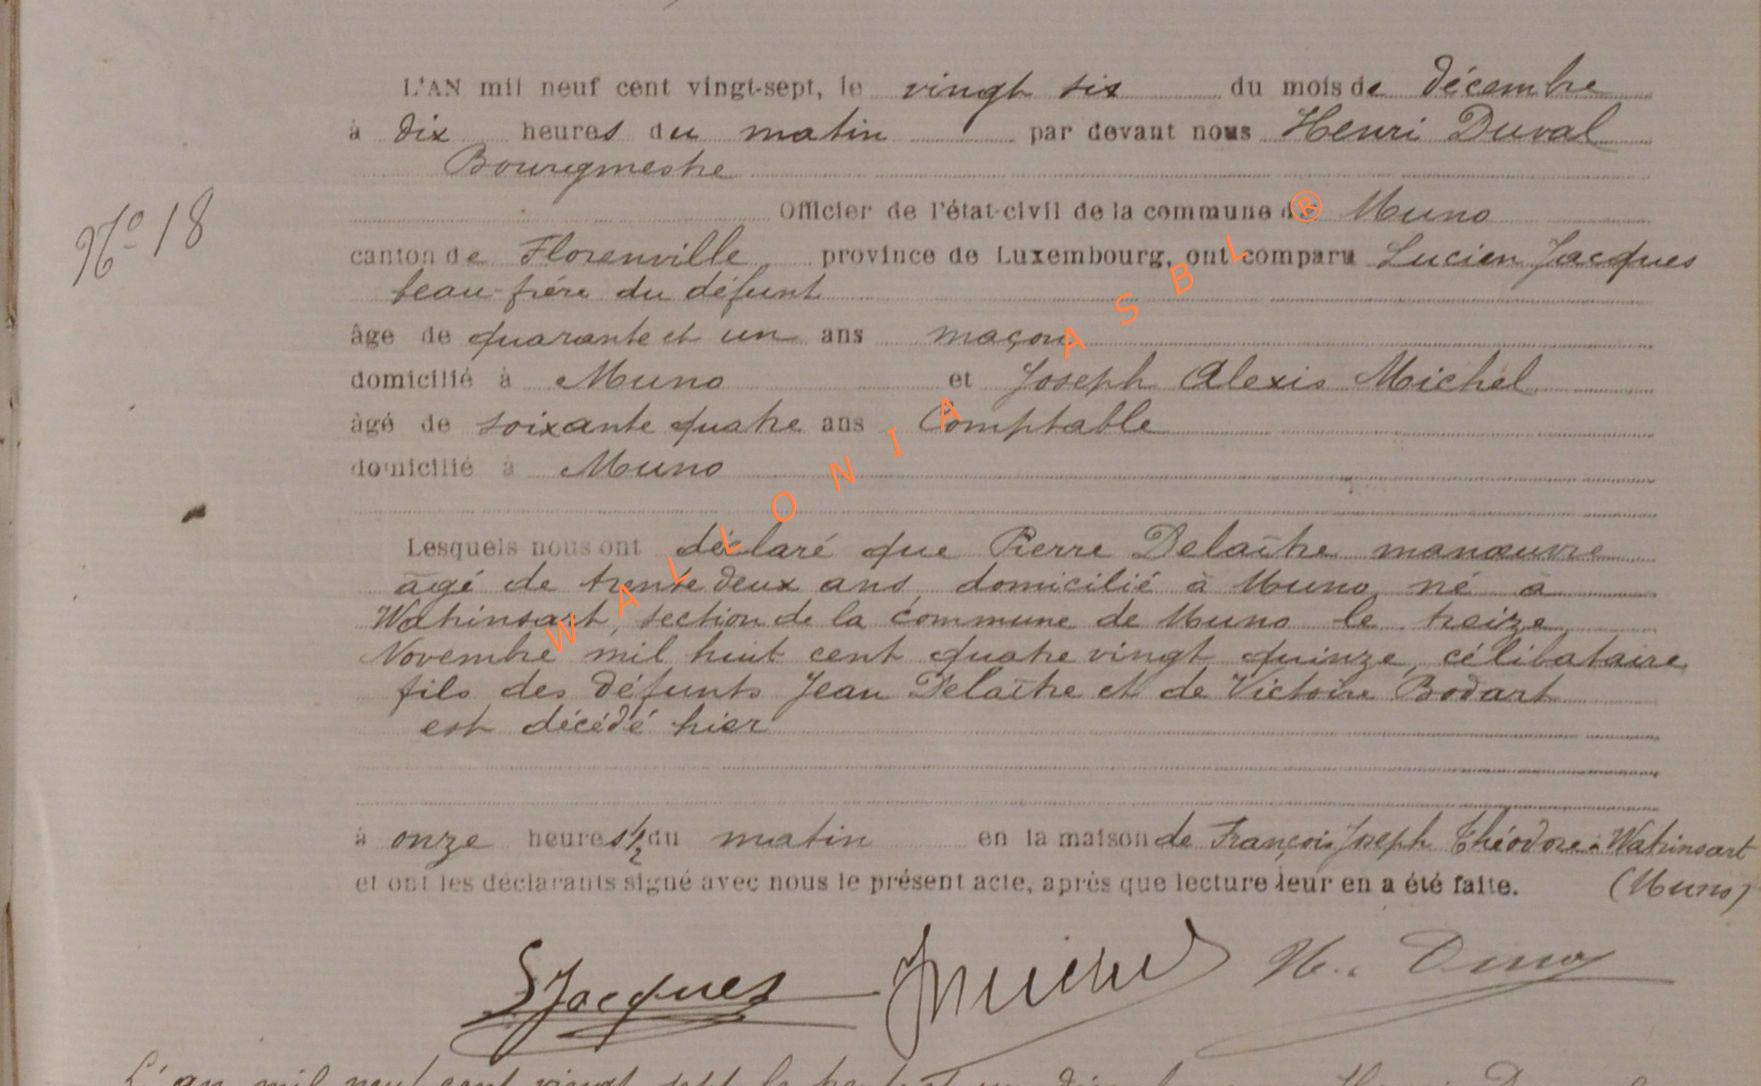 L'AN mil neuf cent vingt-sept, le vingt six du mois de décembre
à dix heures du matin par devant nous Henri Duval
Bourgmestre
Officier de l'état-civil de la commune de Muno
N° 18
canton de Florenville province de Luxembourg, ont comparu Lucien Jacques
beau-frère du défunt
âge de quarante et un ans maçon
domicilié à Muno et Joseph Alexis Michel
âgé de soixante quatre ans Comptable
domicilié à Muno
Lesquels nous ont déclaré que Pierre Delaître manœuvre
âgé de trente deux ans, domicilié à Muno, né à
Watrinsart, section de la commune de Muno le treize
Novembre mil huit cent quatre vingt quinze, célibataire
fils des défunts Jean Delaître et de Victoire Bodart
est décédé hier
à onze heures 1/2 du matin en la maison de François Joseph Théodore à Watrinsart
et ont les déclarants signé avec nous le présent acte, après que lecture leur en a été faite. (Muno)
LJacques JMichel H. Duval
WALLONIA ASBL ®
L'an mil neuf cent vingt sept le